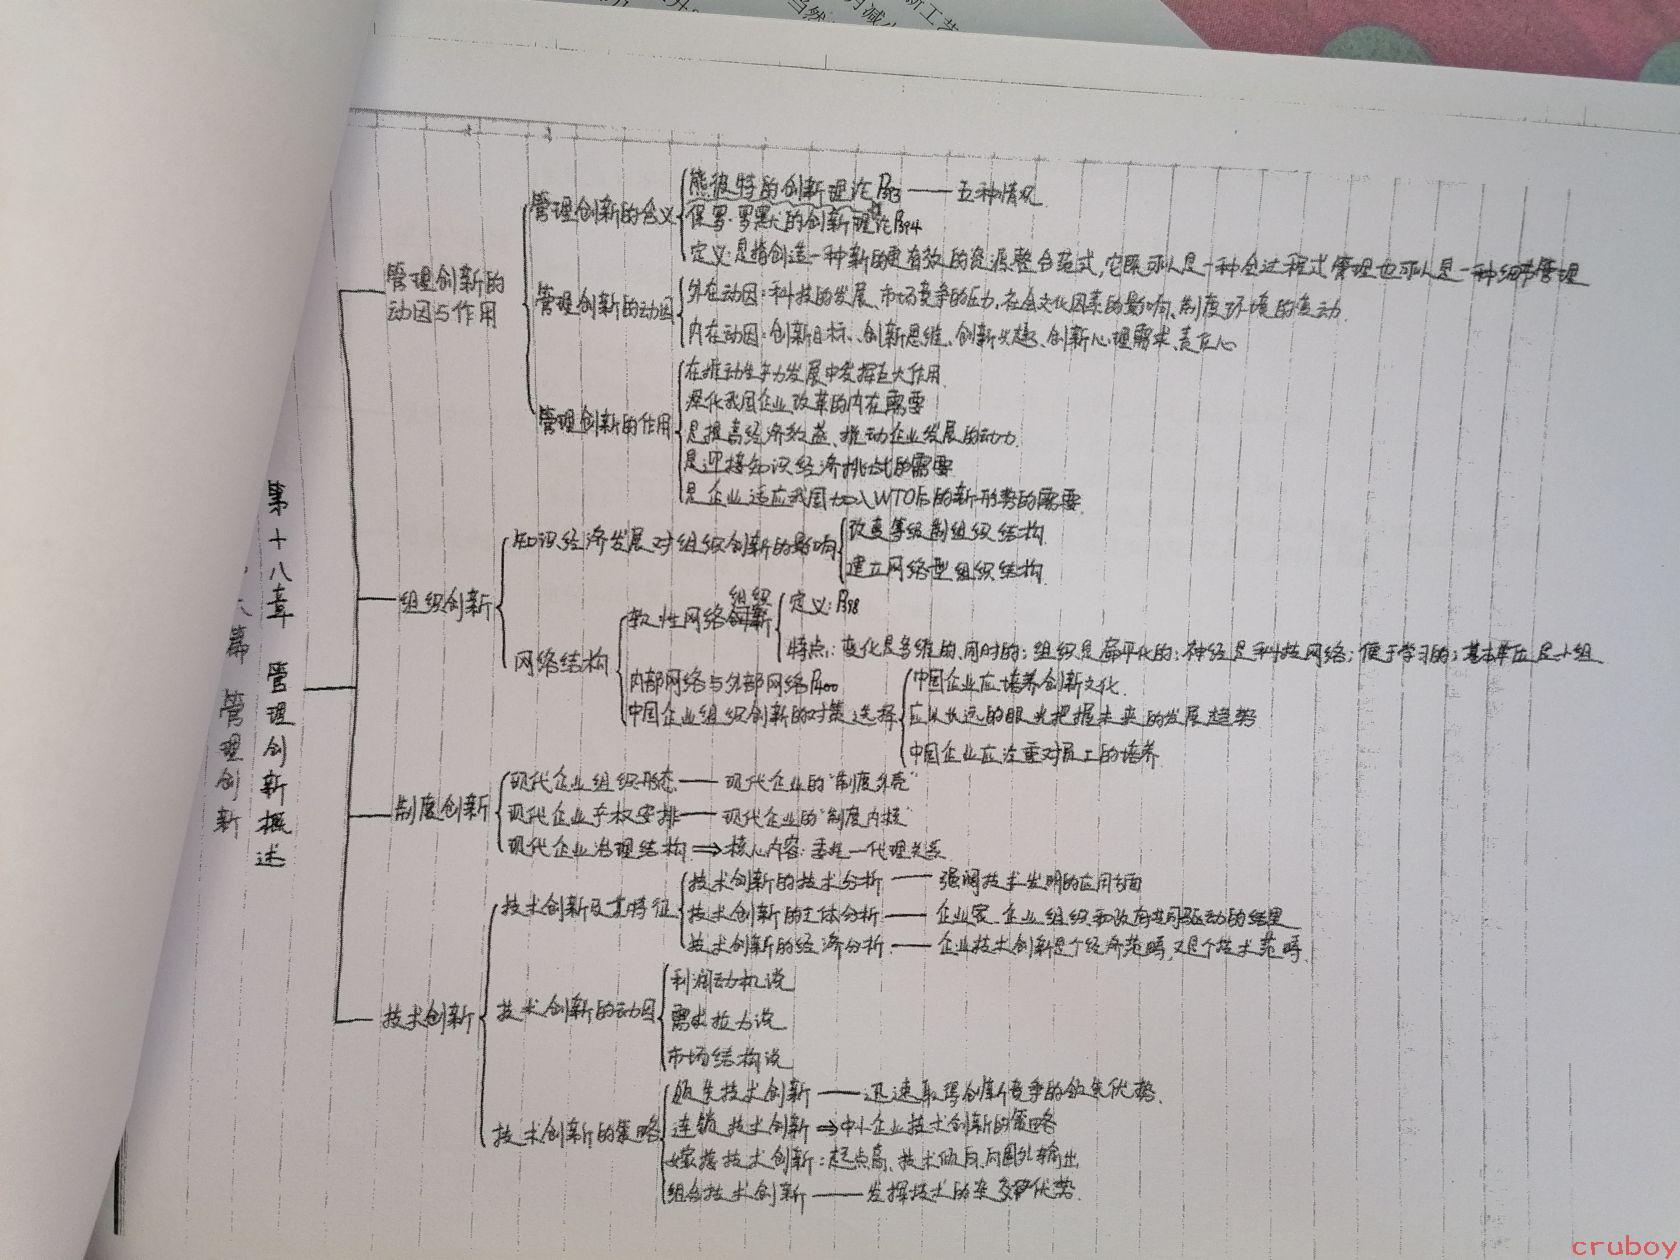 新工艺
当然
第六篇 管理创新
第十八章 管理创新概述
管理创新的
动因与作用
管理创新的含义
熊彼特的创新理论P393 —— 五种情况
保罗·罗默的创新理论P394
定义:是指创造一种新的更有效的资源整合范式,它既可以是一种全过程式管理也可以是一种细节管理
管理创新的动因
外在动因:科技的发展、市场竞争的压力,社会文化因素的影响、制度环境的变动.
内在动因:创新目标、创新思维、创新兴趣、创新心理需求、责任心
管理创新的作用
在推动生产力发展中发挥巨大作用
深化我国企业改革的内在需要
是提高经济效益、推动企业发展的动力
是迎接知识经济挑战的需要
是企业适应我国加入WTO后的新形势的需要
组织创新
知识经济发展对组织创新的影响
改变等级制组织结构
建立网络型组织结构
网络结构
软性网络组织
定义:P398
特点:变化是多维的、同时的;组织是扁平化的;神经是科技网络;便于学习的;基本单位是小组
内部网络与外部网络P400
中国企业组织创新的对策选择
中国企业应培养创新文化
应从长远的眼光把握未来的发展趋势
中国企业应注重对员工的培养
制度创新
现代企业组织形态 —— 现代企业的“制度外壳”
现代企业产权安排 —— 现代企业的“制度内核”
现代企业治理结构 ⇒ 核心内容:委托—代理关系
技术创新
技术创新及其特征
技术创新的技术分析 —— 强调技术发明的应用方面
技术创新的主体分析 —— 企业家、企业组织和政府共同驱动的结果
技术创新的经济分析 —— 企业技术创新是个经济范畴,又是个技术范畴
技术创新的动因
利润动机说
需求拉力说
市场结构说
技术创新的策略
领先技术创新 —— 迅速取得创新竞争的领先优势.
连锁技术创新 ⇒ 中小企业技术创新的策略
嫁接技术创新:起点高、技术倾向、向国外输出
组合技术创新 —— 发挥技术的杂交优势.
cruboy